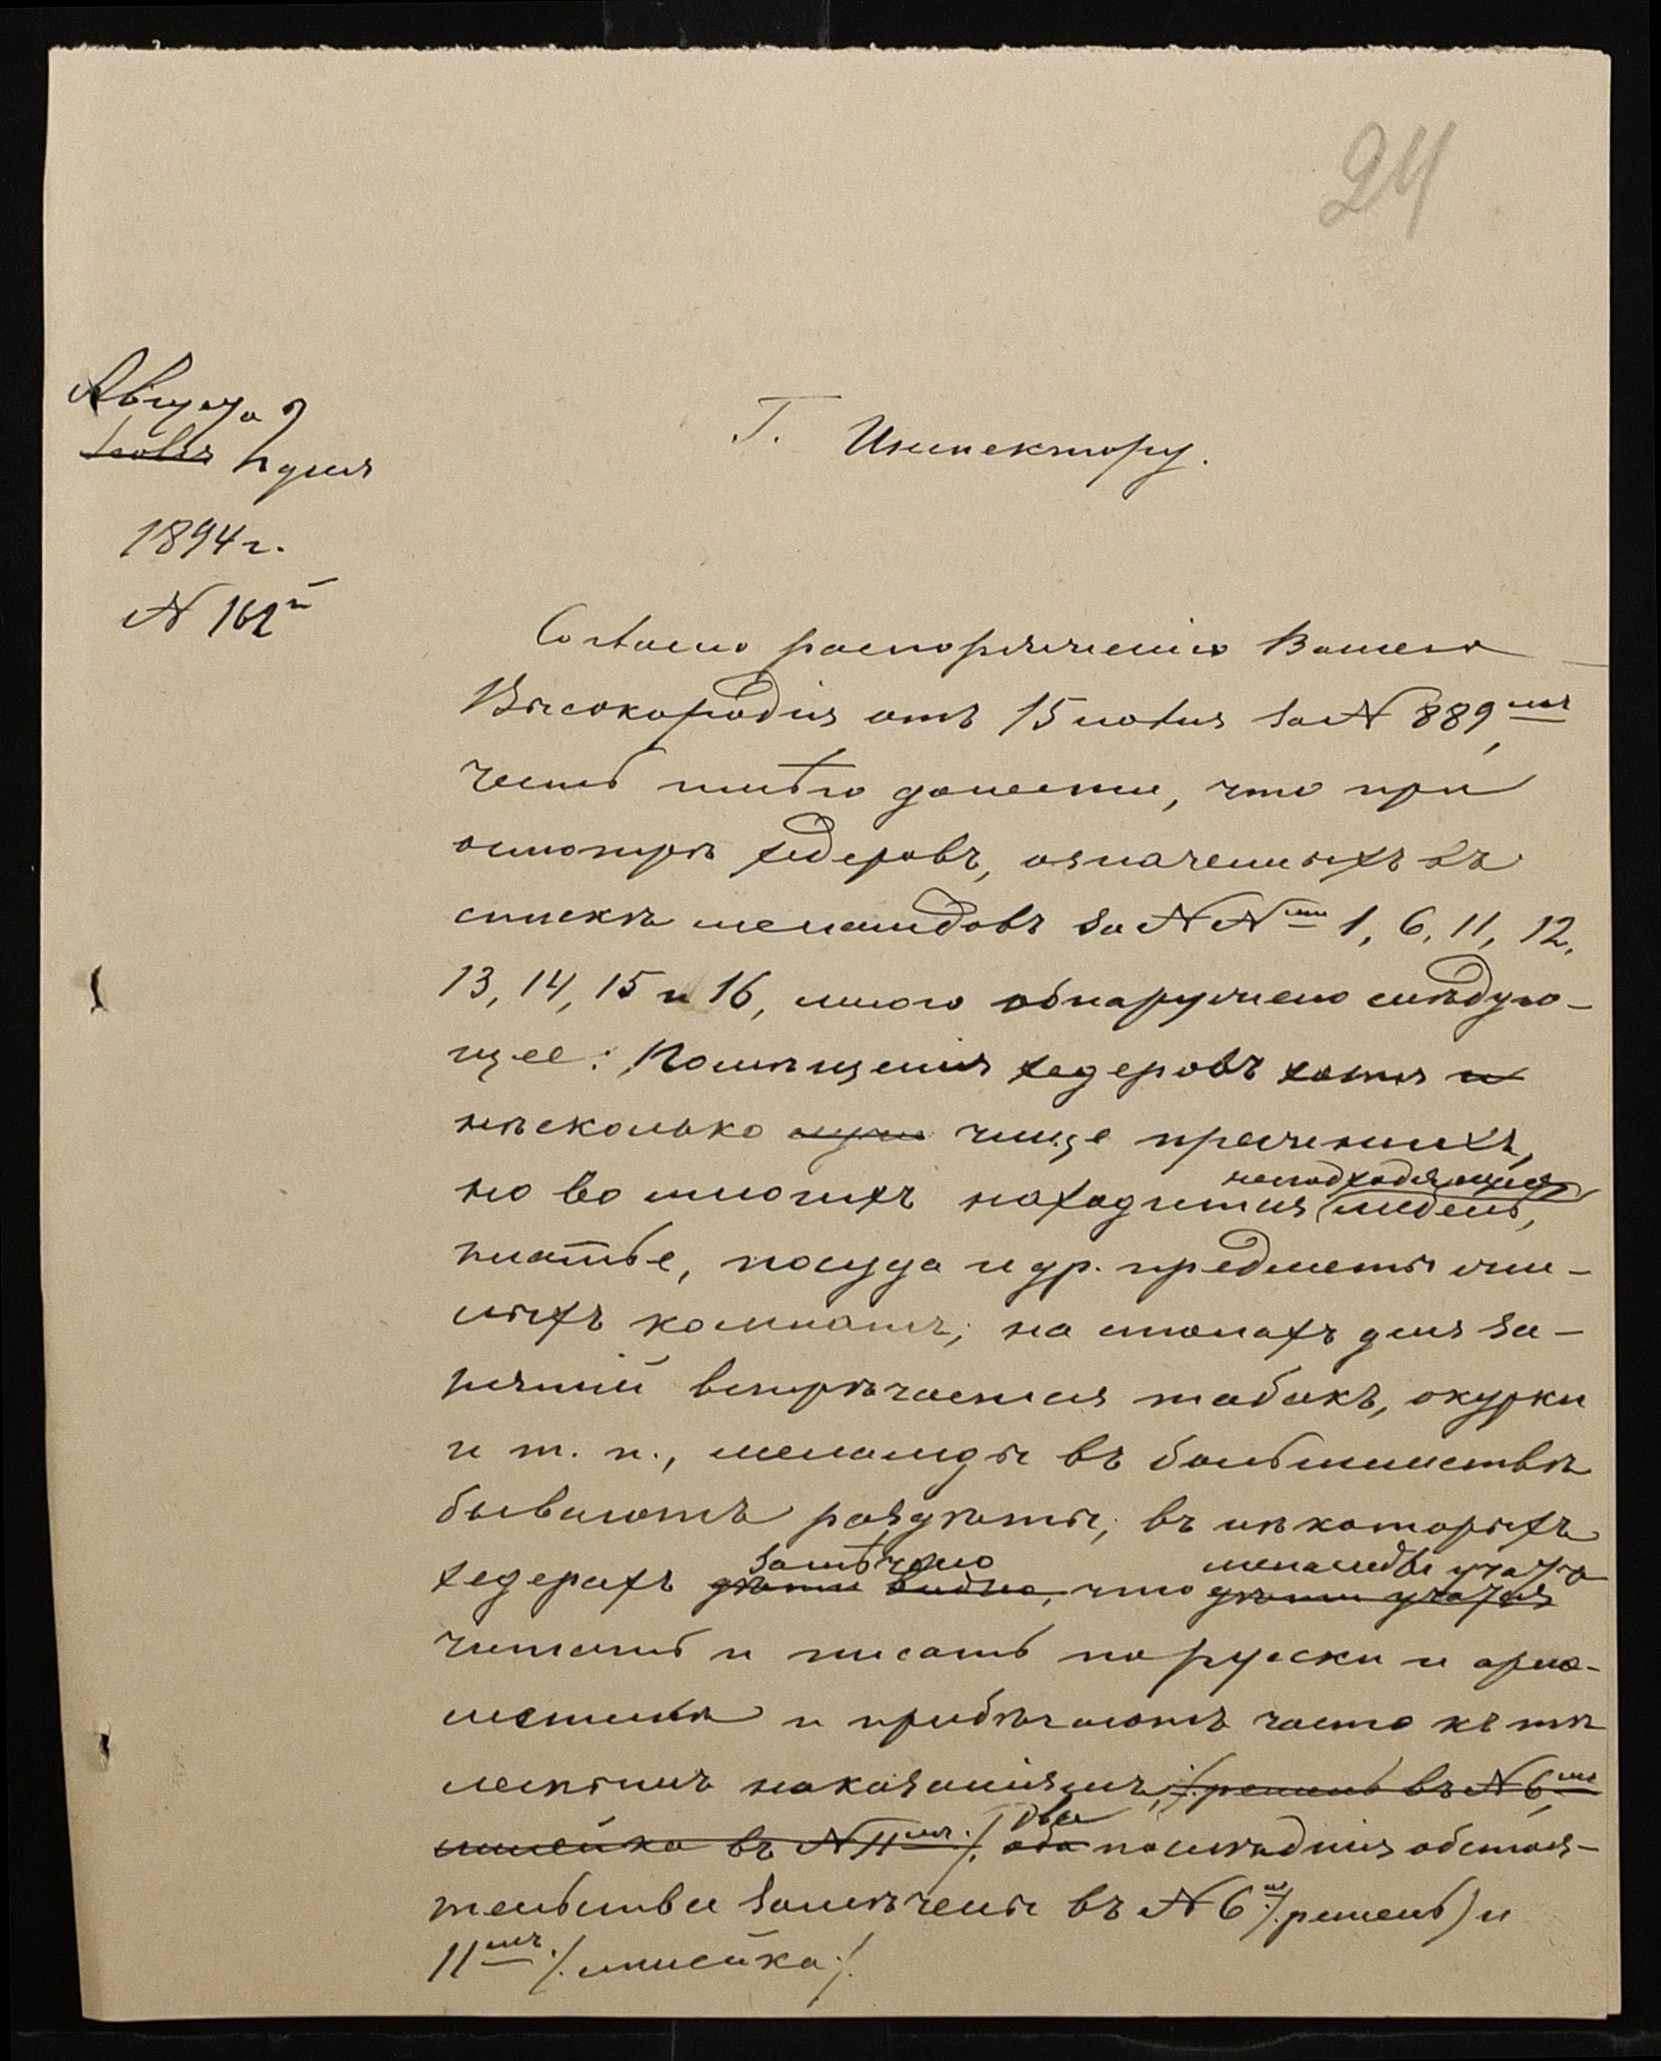 24
Августа 9
Іюля дня
1894 г.
N 162й
Г. Инспектору.
Согласно распоряженію Вашего
Высокородія отъ 15 іюля за N 889мъ,
честь имѣю донести, что при
осмотрѣ хедеровъ, означенныхъ въ
спискѣ меламдовъ за NNми 1, 6, 11, 12,
13, 14, 15 и 16, мною обнаружено слѣдую-
щее: Помѣщенія хедеровъ хотя и
нѣсколько лучше чище прежнихъ,
неподходящая
но во многихъ находится мебель,
платье, посуда и др. предметы жи-
лыхъ комнатъ; на столахъ для за-
нятій встрѣчается табакъ, окурки
и т. п., меламды въ большинствѣ
бываютъ раздѣты; въ нѣкоторыхъ
замѣчено меламды учатъ
хедерахъ дѣти видно, что дѣти учатся
читать и писать по русски и ариѳ-
метикѣ и прибѣгаютъ часто къ тѣ
леснымъ наказаніямъ, /ремень въ N 6мъ,
Два
линейка въ N 11мъ./. оба послѣднія обстоя-
тельства замѣчены въ N 6мъ /.ремень) и
11мъ /.линейка./.